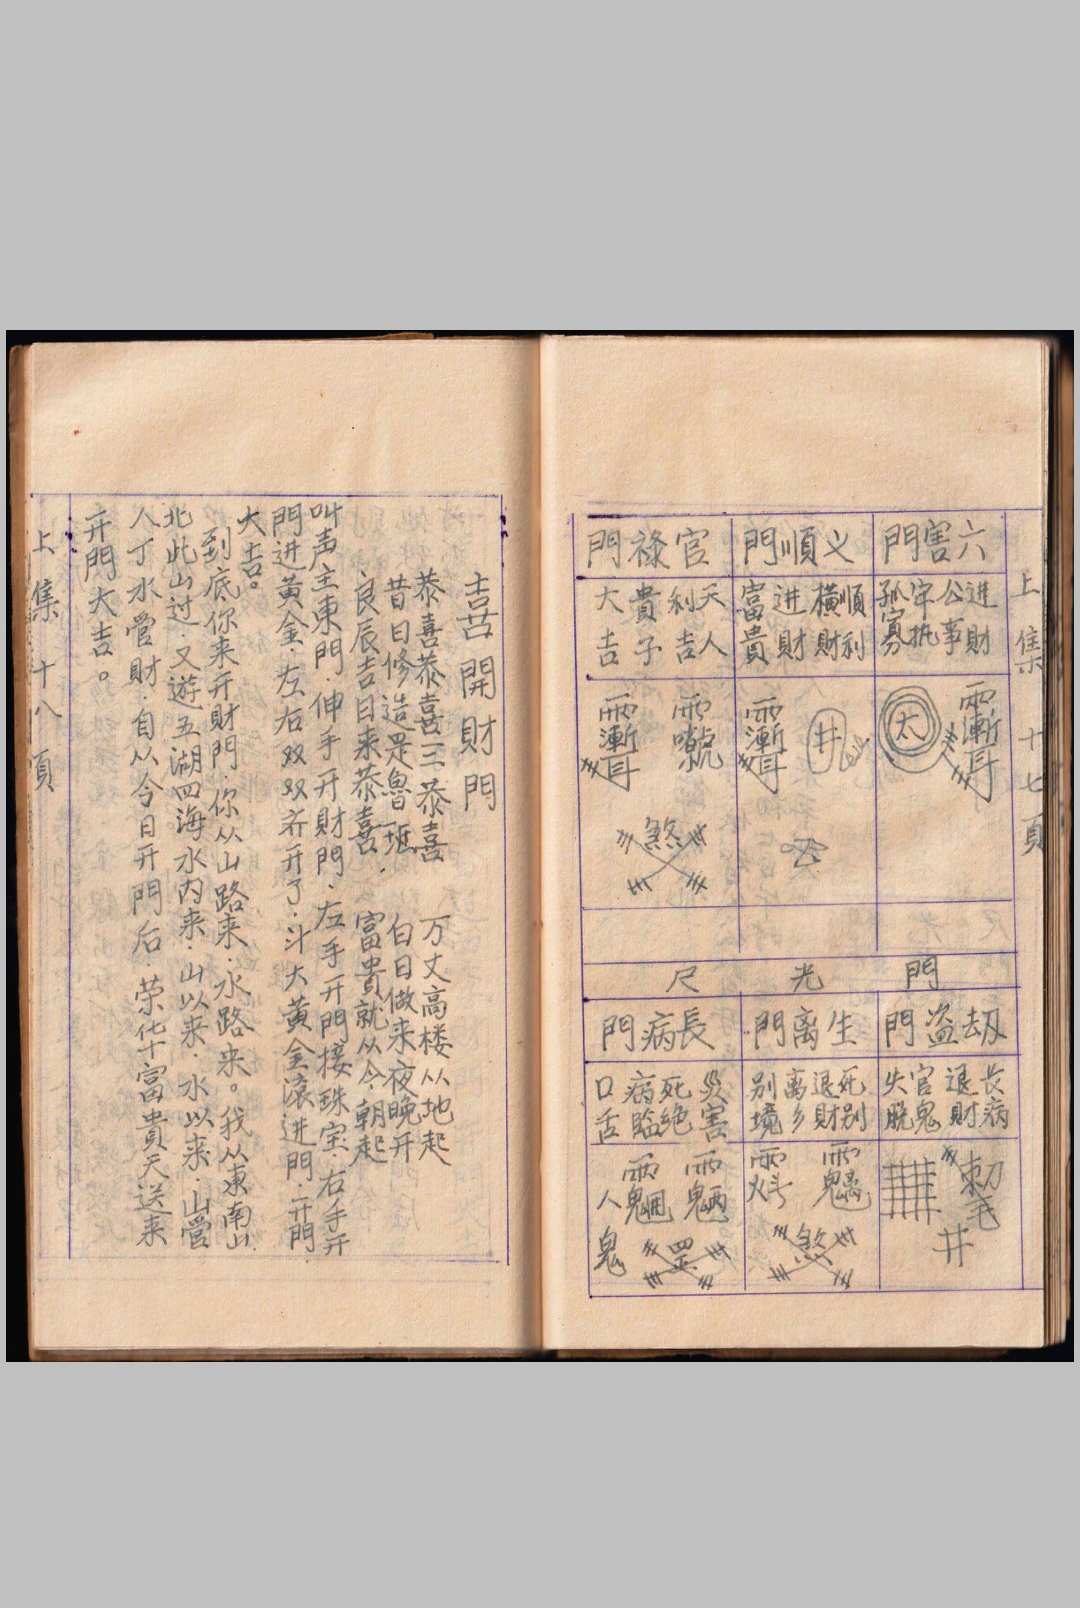 上集 十七頁
六害門
進財
公事
牢执
孤寡
义順門
順利
橫財
進財
富貴
官祿門
天人
利吉
貴子
大吉
太
井
煞
門光尺
劫盗門
长病
退財
官鬼
失脱
生离門
死别
退財
离乡
别境
長病門
災害
死絶
病臨
口舌
井
煞
罡
人鬼
喜開財門
恭喜恭喜三恭喜 万丈高楼从地起
昔日修造是魯班 白日做来夜晚开
良辰吉日来恭喜． 富貴就从今朝起
叫声主東門．伸手开財門．左手开門接珠宝．右手开
門進黃金．左右双双齐开了．斗大黃金滾進門．开門
大吉。
到底你来开財門．你从山路来．水路来。我从東南山．
北此山过．又遊五湖四海水内来．山以来．水以来．山管
人丁水管財．自从今日开門后．荣华富貴天送来
开門大吉。
上集十八頁